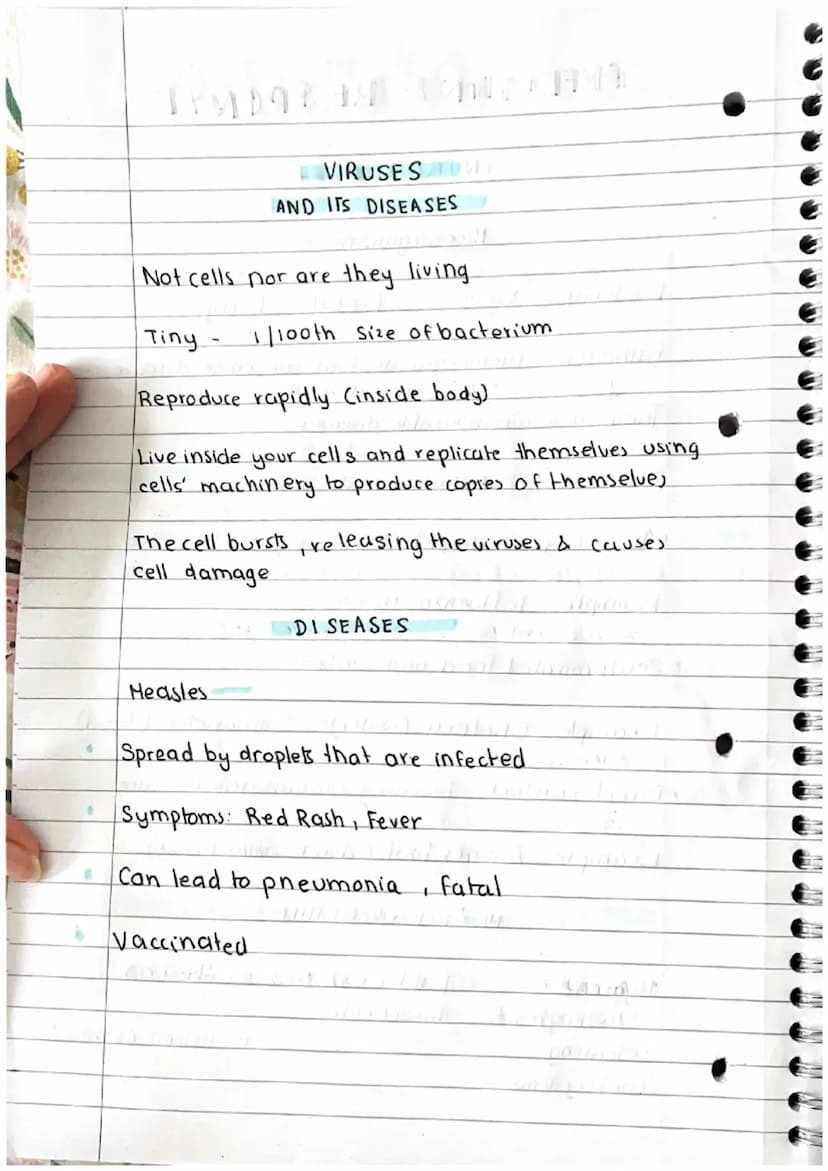 VIRUSES
AND ITS DISEASES
Not cells nor are they living
Tiny - 1/100th size of bacterium
Reproduce rapidly (inside body)
Live inside your cells and replicate themselves using
cells' machinery to produce copies of themselves
The cell bursts, releasing the viruses & causes
cell damage
DISEASES
Measles
Spread by droplets that are infected
Symptoms: Red Rash, Fever
Can lead to pneumonia, fatal
Vaccinated